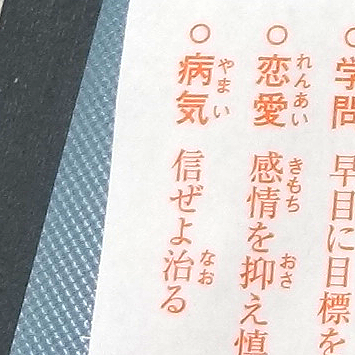 ○学問 早目に目標を
○恋愛 感情を抑え慎
れんあい きもち おさ
○病気 信ぜよ治る
やまい なお